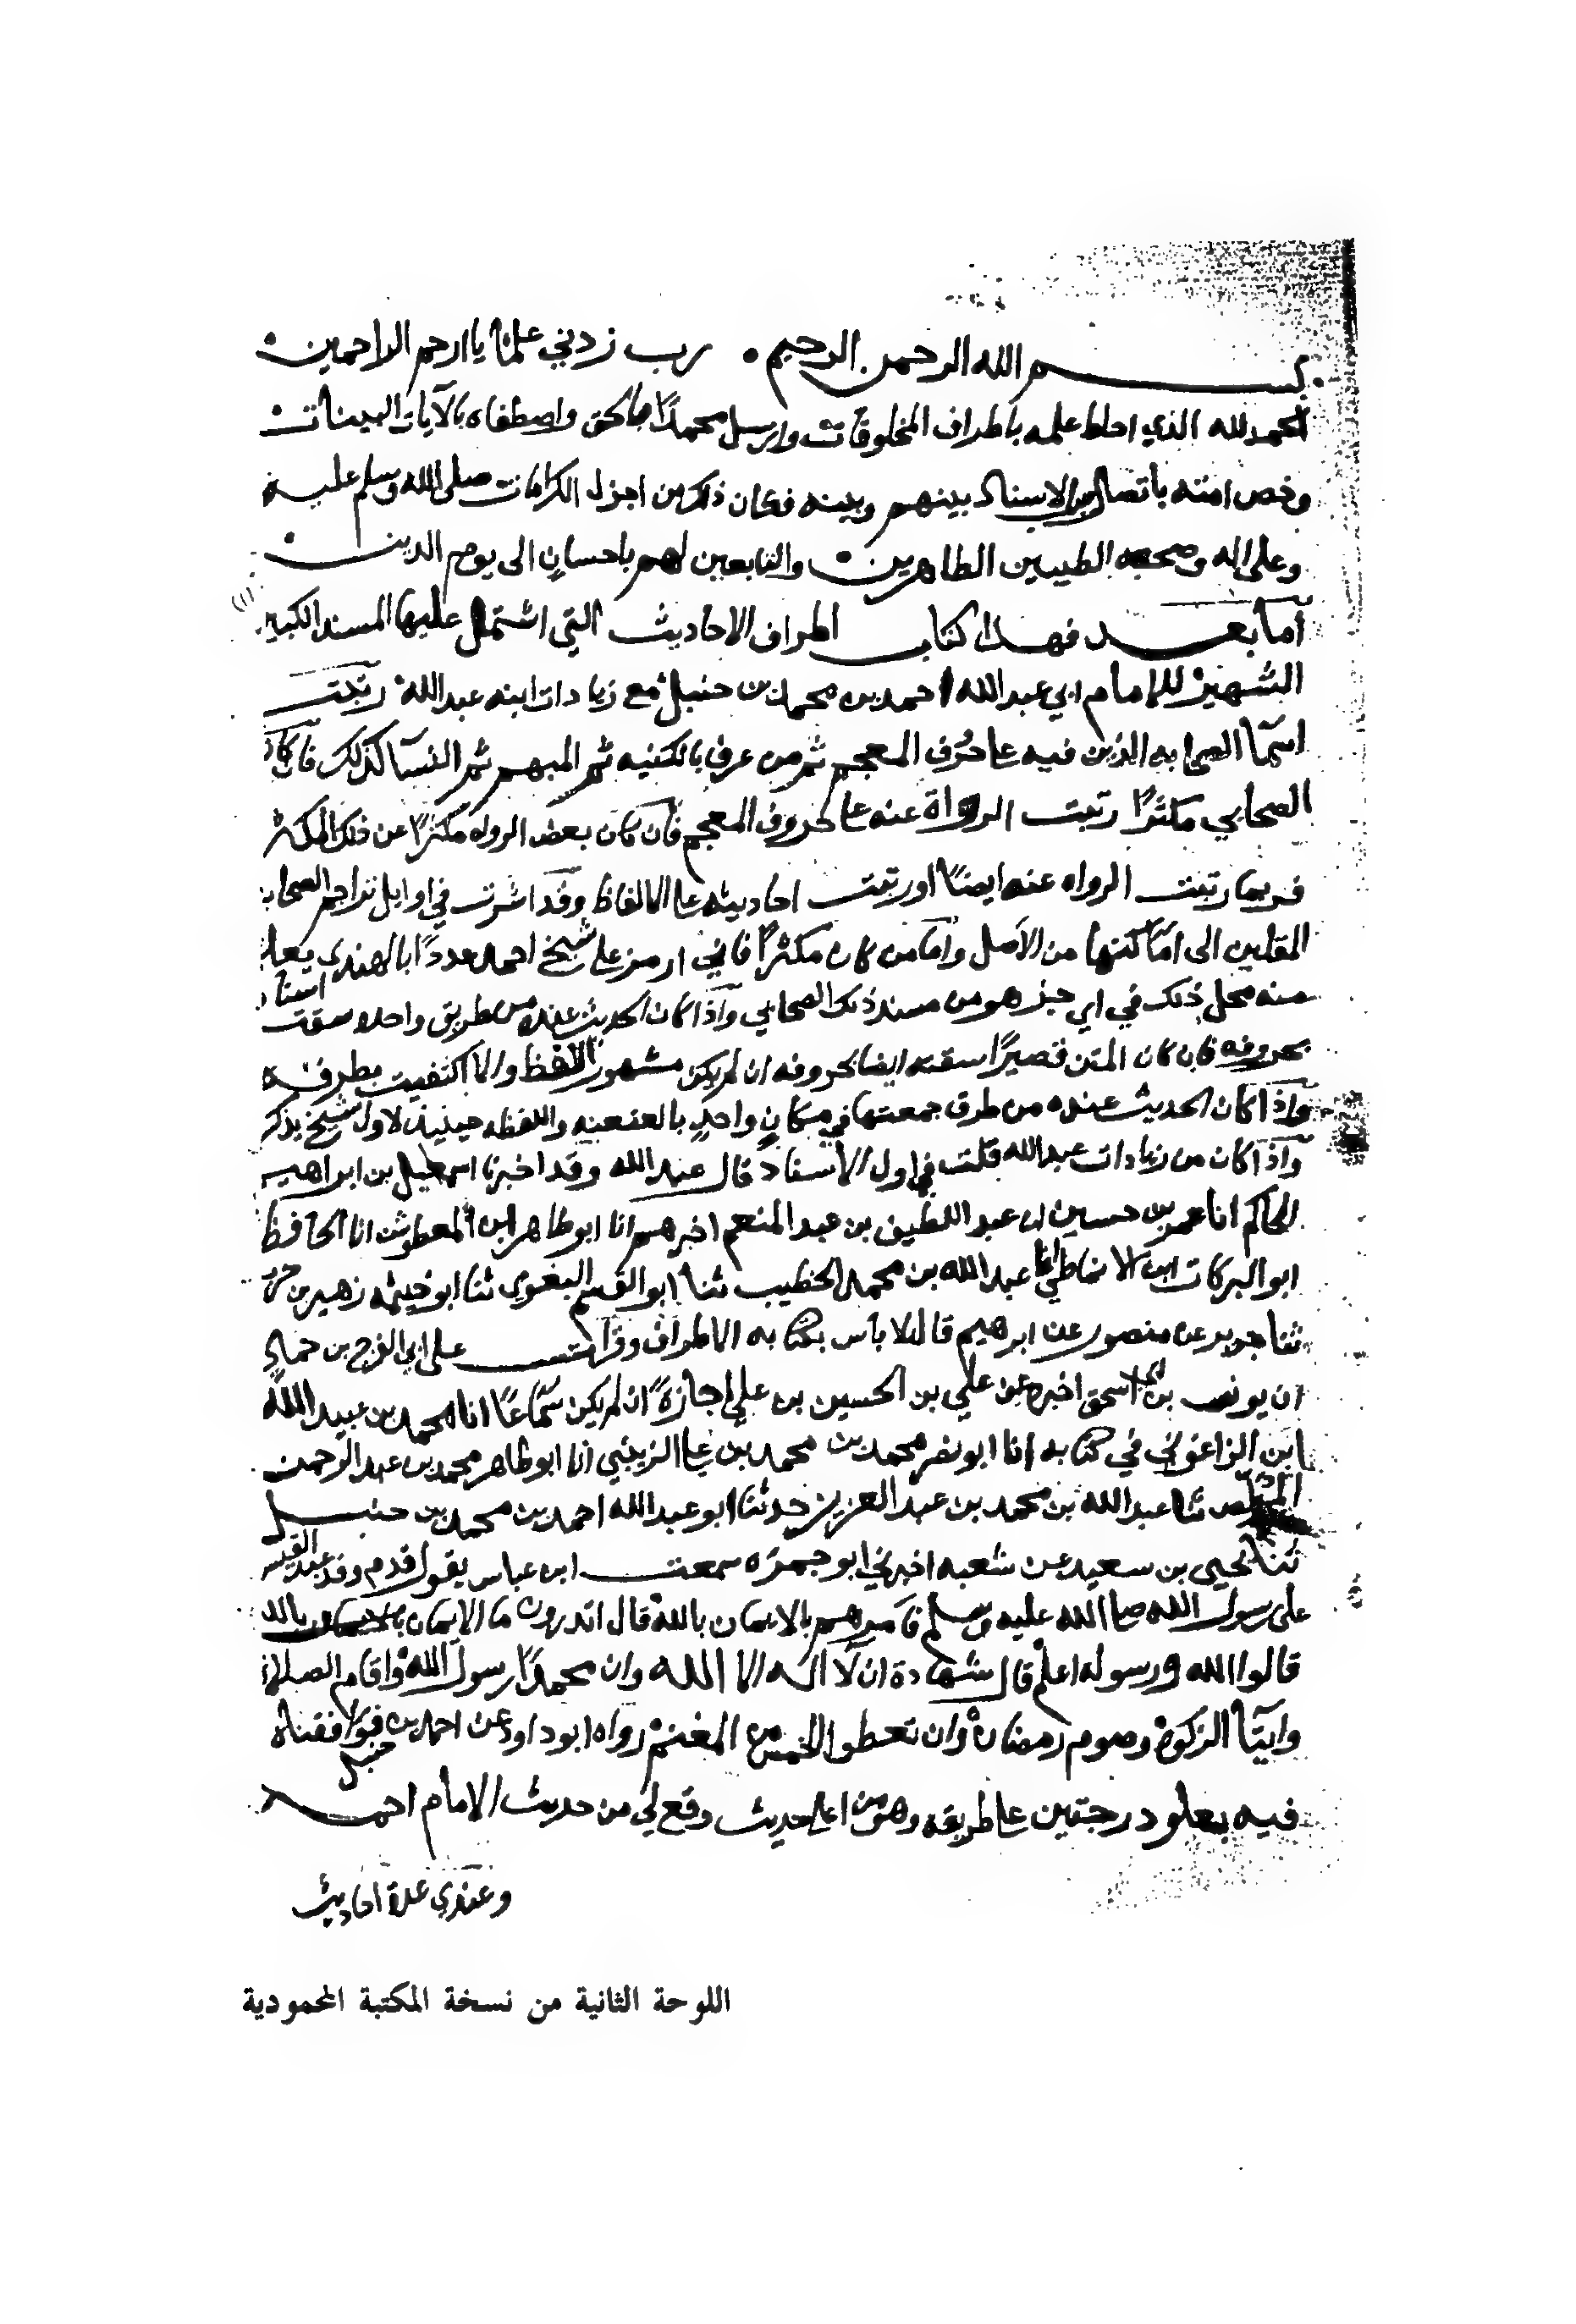 بسم الله الرحمن الرحيم • رب زدني علما يا ارحم الراحمين •
الحمد لله الذي احاط علمه باطراف المخلوقات وارسل محمدًا بالحق واصطفاه بالآيات البينات •
وخص امته باتصال الاسناد بينهم وبينه فكان ذلك من اجزل الكرامات صلى الله وسلم عليه
وعلى اله وصحبه الطيبين الطاهرين • والتابعين لهم باحسانٍ الى يوم الدين •
أما بعد فهذا كتاب اطراف الاحاديث التي اشتمل عليها المسند الكبير
الشهير للامام ابي عبد الله احمد بن محمد بن حنبل مع زيادات ابنه عبد الله رتبت
اسمآ الصحابه الذين فيه على حروف المعجم ثم من عرف بالكنيه ثم المبهم ثم النسآ كذلك فان كان
الصحابي مكثرًا رتبت الرواة عنه على حروف المعجم فان كان بعض الرواه مكثرًا عن ذلك المكثر
فربما رتبت الرواه عنه ايضًا او رتبت احاديثه على الالفاظ وقد اشرت في اوايل تراجم الصحابه
المقلين الى اماكنها من الأصل واما من كان مكثرًا فاني ارمز على شيخ احمد عددًا بالهندي يعلم
منه محل ذلك في اي جز هو من مسند ذلك الصحابي واذا كان الحديث عنده من طريق واحد سقت اسناده
بحروفه فان كان المتن قصيرًا سقته ايضا بحروفه ان لم يكن مشهور اللفظ والا اكتفيت بطرفه
واذا كان الحديث عنده من طرق جمعتها في مكانٍ واحدٍ بالعنعنه واللفظه حينيذ لاول شيخ يذكر
واذا كان من زيادات عبد الله قلت في اول الاسناد قال عبد الله وقد اخبرنا اسمعيل بن ابراهيم
الحاكم انا عمر بن حسين ان عبد اللطيف بن عبد المنعم اخبرهم انا ابو طاهر ابن المعطوش انا الحافظ
ابو البركات ابن الانماطي انا عبد الله بن محمد الخطيب ثنا ابو القسم البغوي ثنا ابو خيثمه زهير بن حرب
ثنا جرير عن منصور عن ابرهيم قال لا باس بكتابه الاطراف وقرات على ابي الفرج بن حماد
ان يونس بن اسحق اخبره عن علي بن الحسين بن علي اجازةً ان لم يكن سماعًا انا محمد بن عبيد الله
ابن الزاغوني في كتابه انا ابو نصر محمد بن محمد بن علي الزينبي انا ابو طاهر محمد بن عبد الرحمن
المخلص ثنا عبد الله بن محمد بن عبد العزيز حدثنا ابو عبد الله احمد بن محمد بن حنبل
ثنا يحيى بن سعيد عن شعبه اخبرني ابو جمرة سمعت ابن عباس يقول قدم وفد عبد القيس
على رسول الله صلى الله عليه وسلم فامرهم بالايمان بالله قال اتدرون ما الايمان بالله
قالوا الله ورسوله اعلم قال شهادة ان لا اله الا الله وان محمدًا رسول الله واقام الصلاة
وايتآ الزكوة وصوم رمضان وان تعطوا الخمس من المغنم رواه ابو داود عن احمد بن حنبل فوافقناه
فيه بعلو درجتين على طريقه وهو من اعلى حديث وقع لي من حديث الامام احمد
وعندي عدة احاديث
اللوحة الثانية من نسخة المكتبة المحمودية